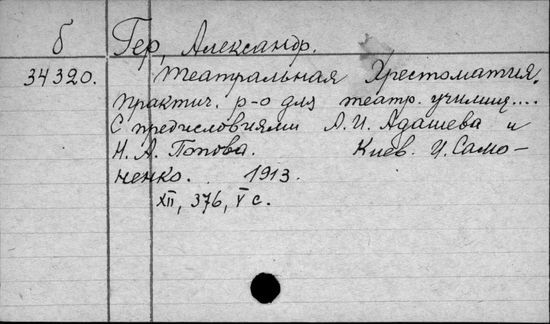 б Гер, Александр.
34320. Театральная Хрестоматия.
Практич. р-о для театр. училищ....
С предисловиями А.И. Адашева и
Н.А. Попова. Киев. И. Само-
ненко. 1913.
XII, 376, V с.